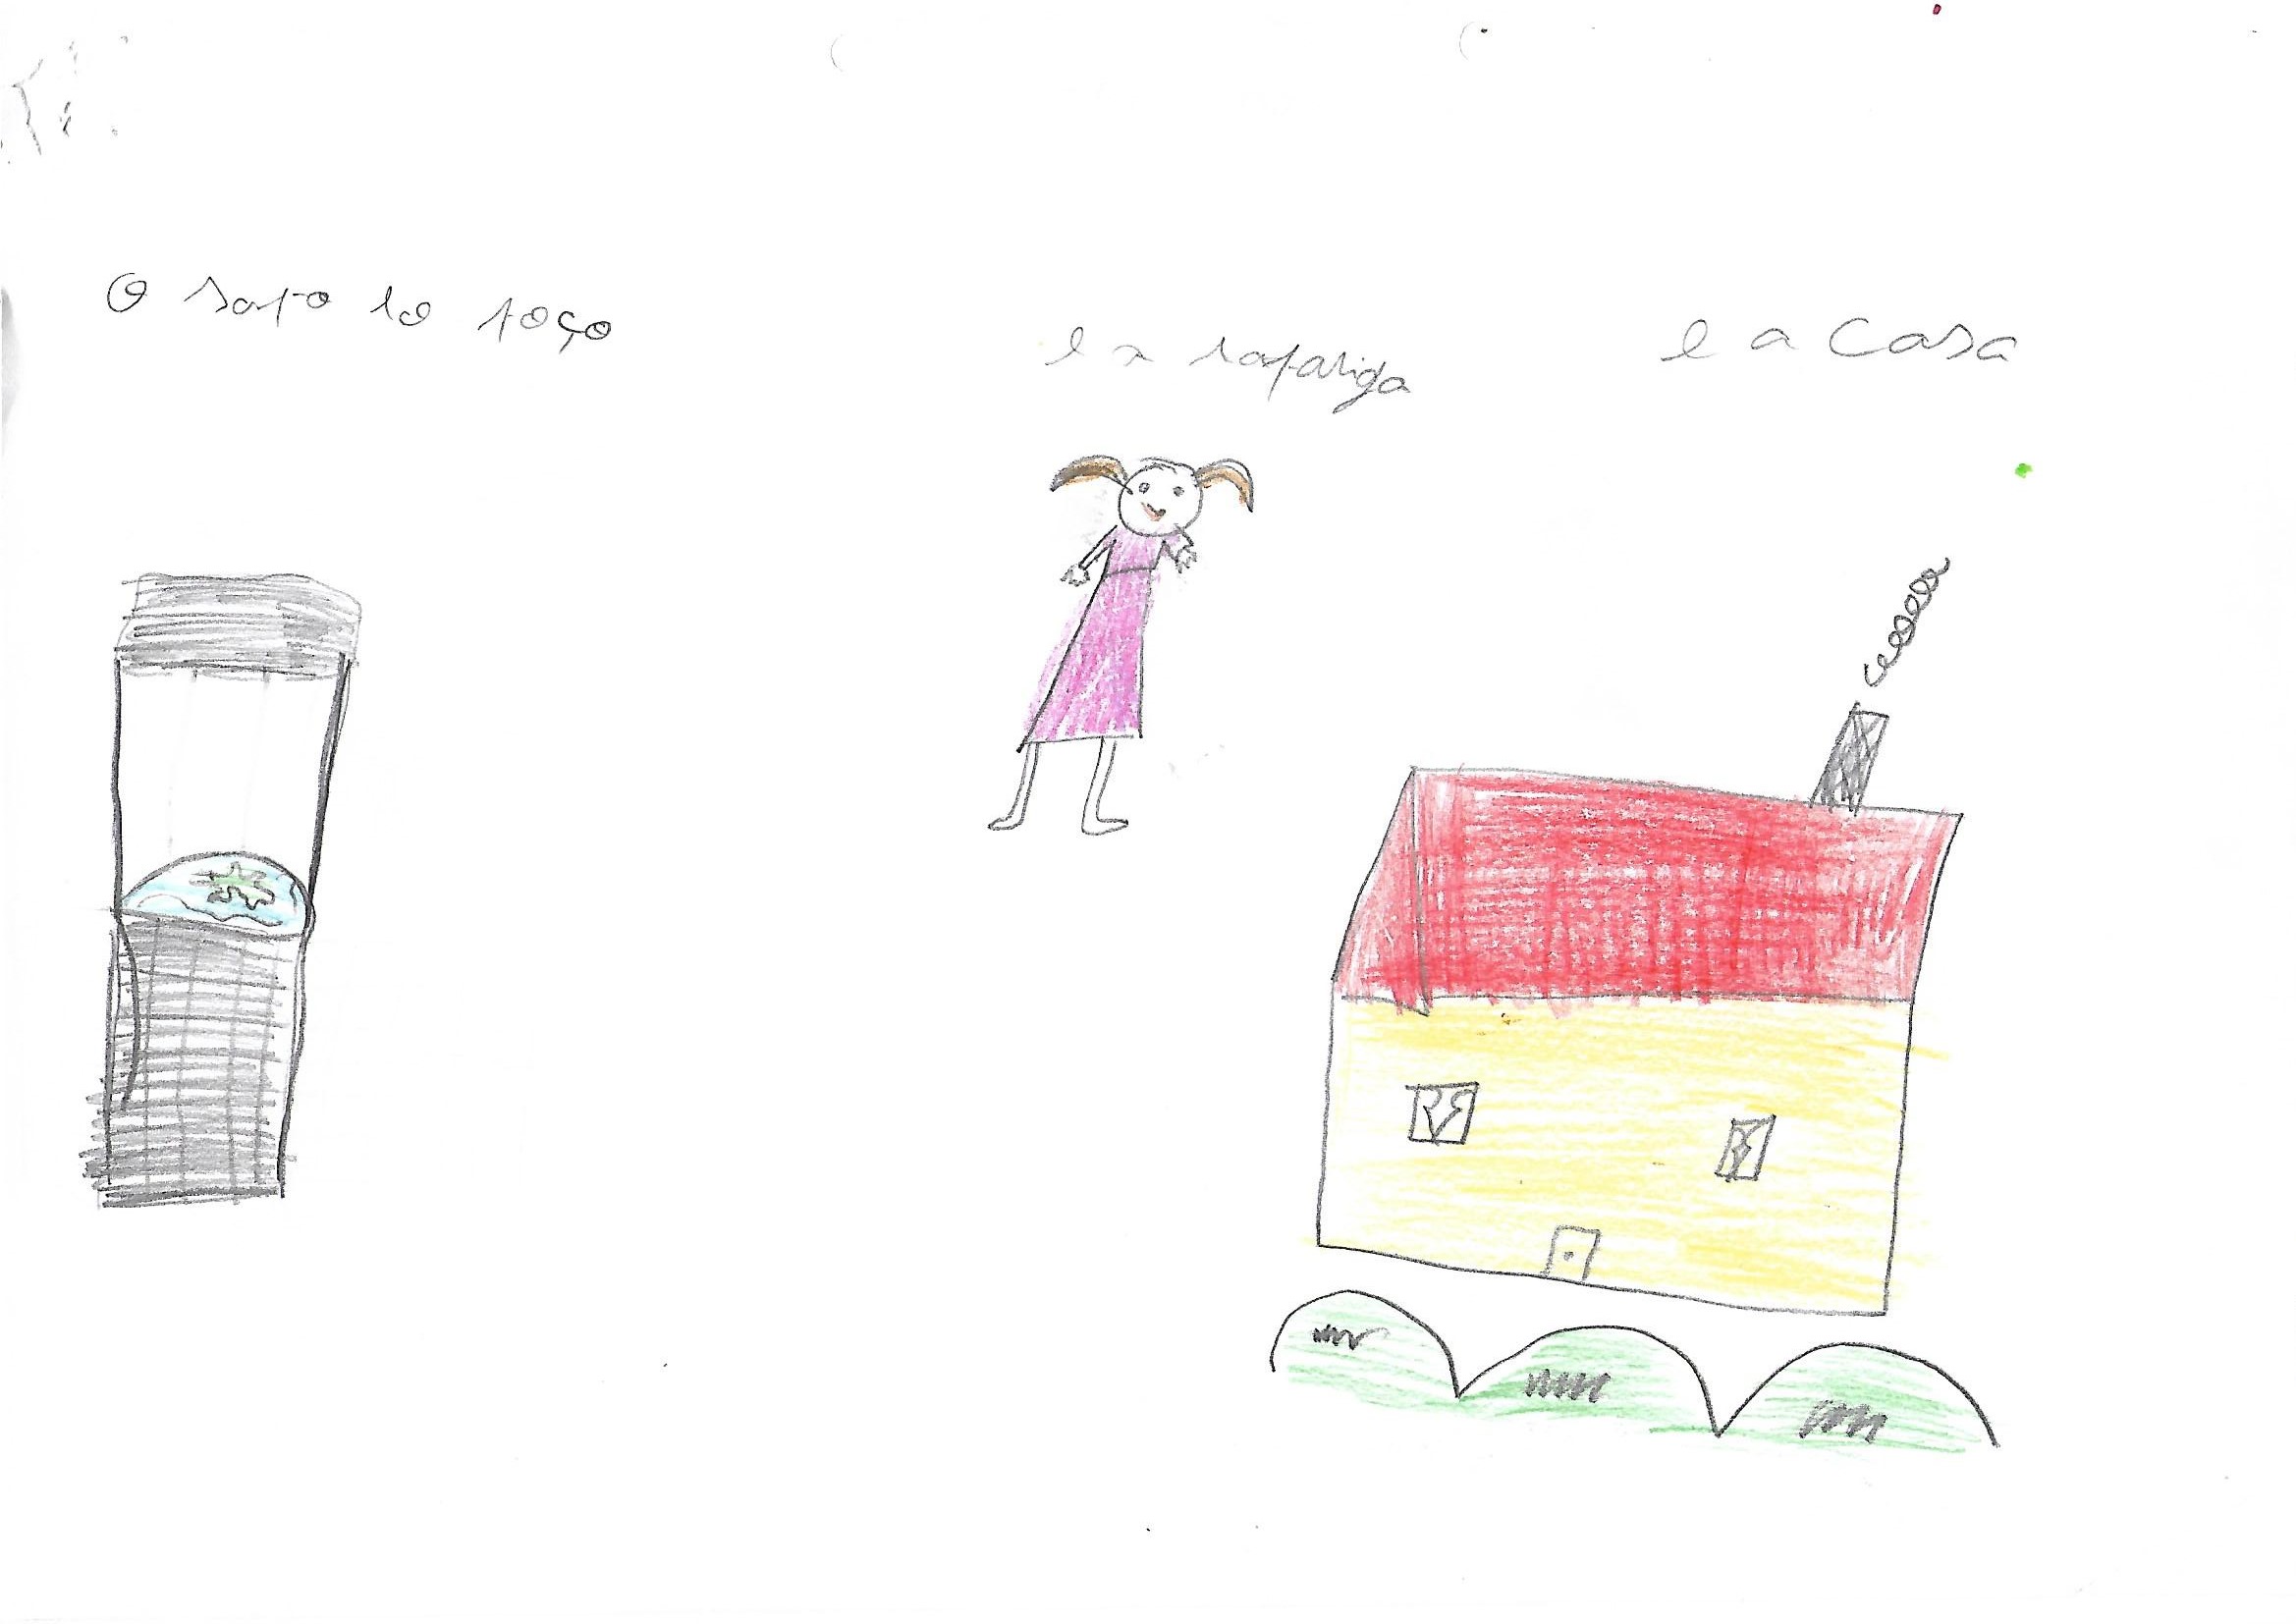 O sapo lo poço
e a rapariga
e a casa